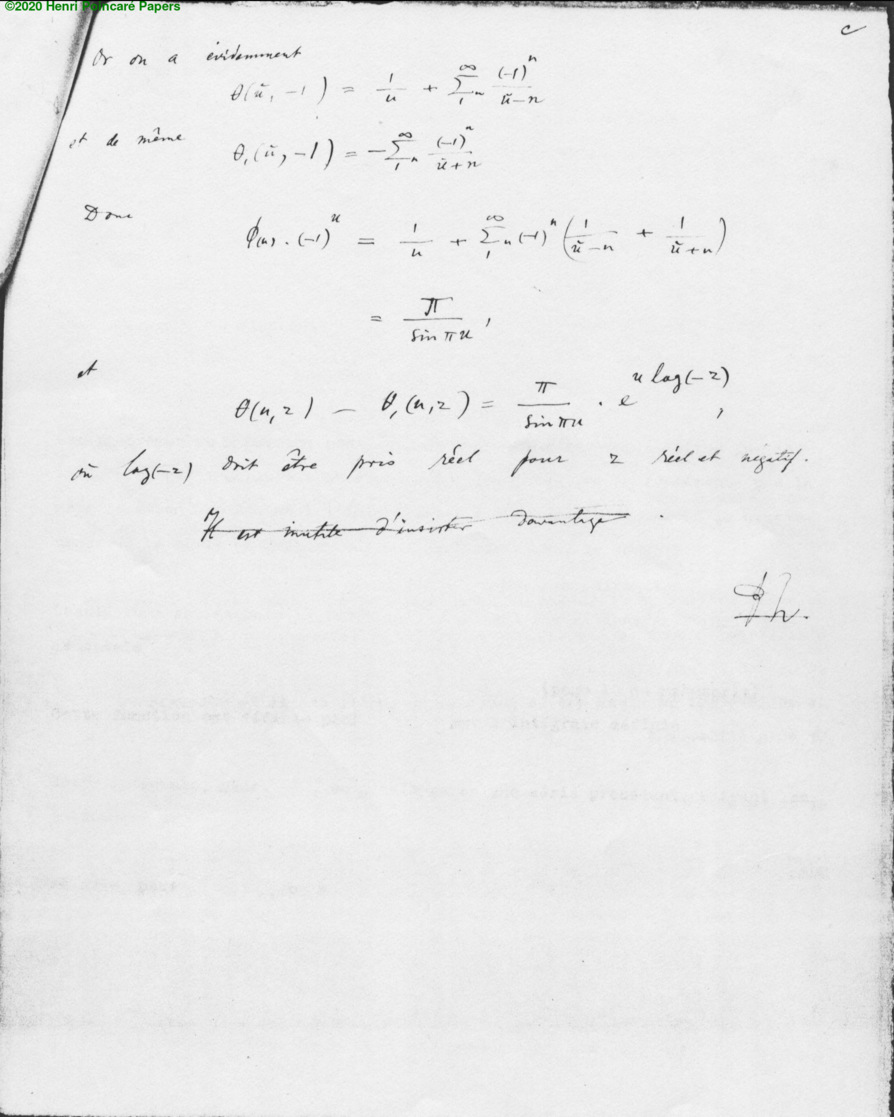 ©2020 Henri Poincaré Papers
c
Or on a évidemment
θ(u, -1) = 1/u + Σ_1^∞ n (-1)^n/(u-n)
et de même
θ₁(u, -1) = -Σ_1^∞ n (-1)^n/(u+n)
Donc
φ(u) . (-1)^u = 1/u + Σ_1^∞ n (-1)^n (1/(u-n) + 1/(u+n))
= π/sin πu ,
et
θ(u,z) - θ₁(u,z) = π/sin πu . e^{u log(-z)} ,
où log(-z) doit être pris réel pour z réel et négatif.
Il est inutile d'insister davantage .